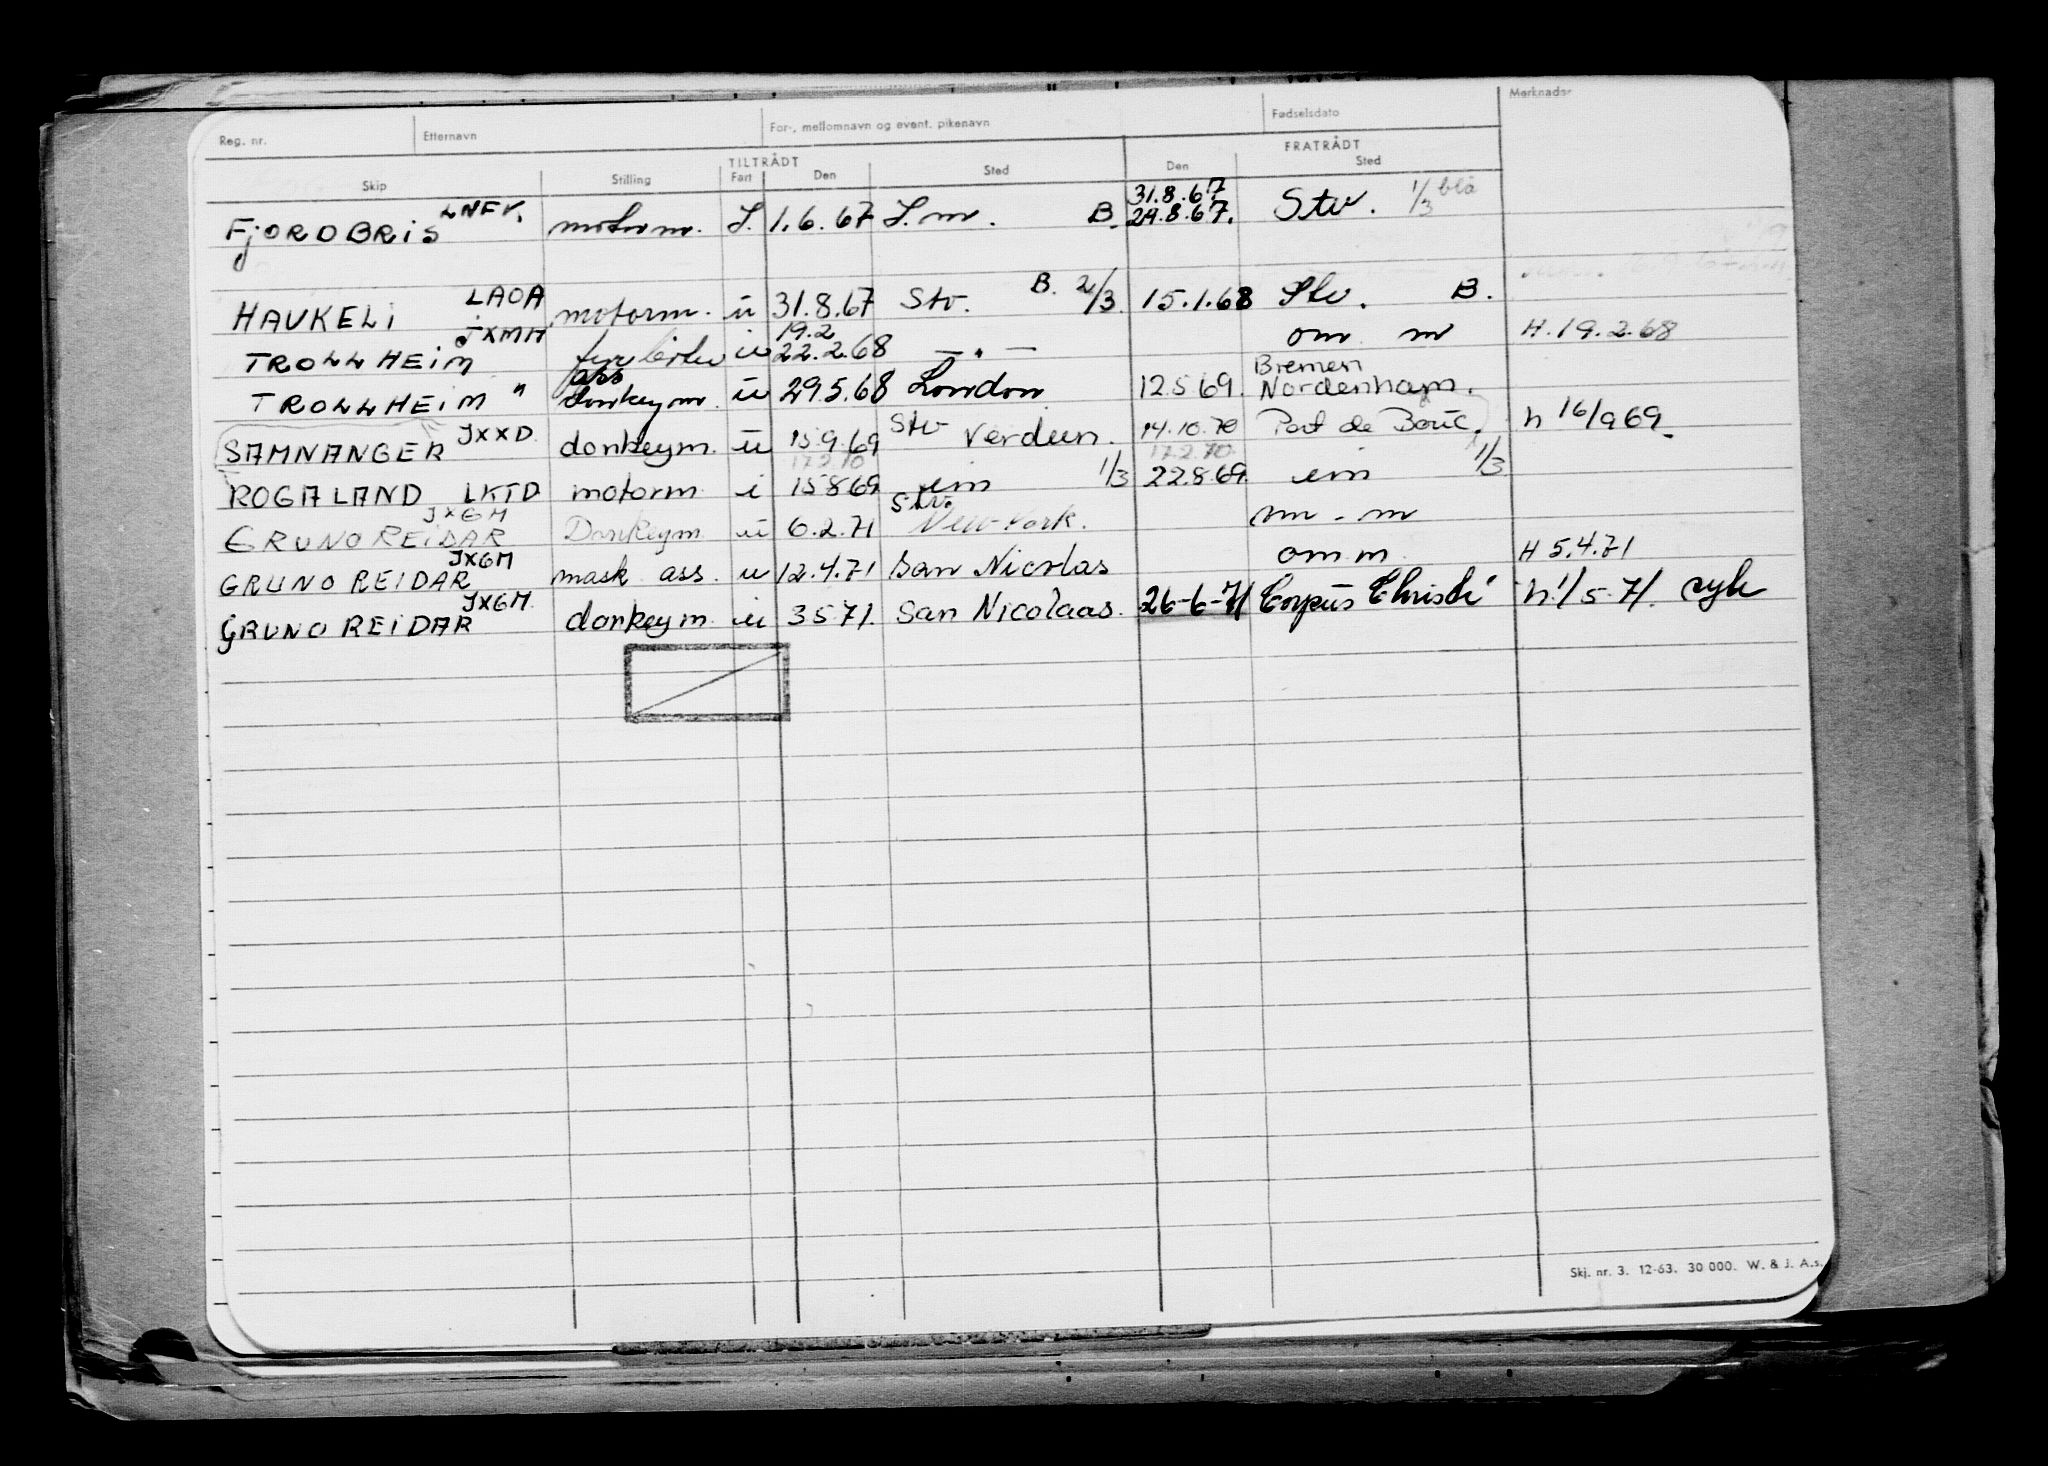 Reg. nr. Etternavn For-, mellomnavn og event. pikenavn Fødselsdato Merknader
TILTRÅDT FRATRÅDT
Skip Stilling Fart Den Sted Den Sted
31.8.67
FjORDBRiS LNFV. motorm. I. 1.6.67 I.m. B. 29.8.67. Stv. 1/3 blå
HAUKELi LAOA motorm. u 31.8.67 Stv. B. 2/3 15.1.68 Stv. B.
19.2
TROLLHEIM JXMH fyrbøter u 22.2.68 — " — om m H. 19.2.68
ass Bremen
TROLLHEiM " donkeym. u 29.5.68 London 12.5 69. Nordenham.
SAMNANGER JXXD donkeym. u 15.9.69 Stv Verdun. 14.10.70 Port de Bouc. h 16/9 69.
17.2.70 17.2.70
ROGALAND LKTD motorm i 15 8 69 em 1/3 22 8 69. em 1/3
Stv.
GRUNO REiDAR JXGM Donkeym u 6.2.71 New York. m - m
GRUNO REIDAR JXGM mask. ass. u 12.4.71 San Nicolas om m H 5.4.71
GRUNO REiDAR JXGM. donkeym u 3 5 71. San Nicolaas. 26-6-71 Corpus Christi h 1/5-71. syk
Skj. nr. 3. 12-63. 30 000. W. & J. A.s.